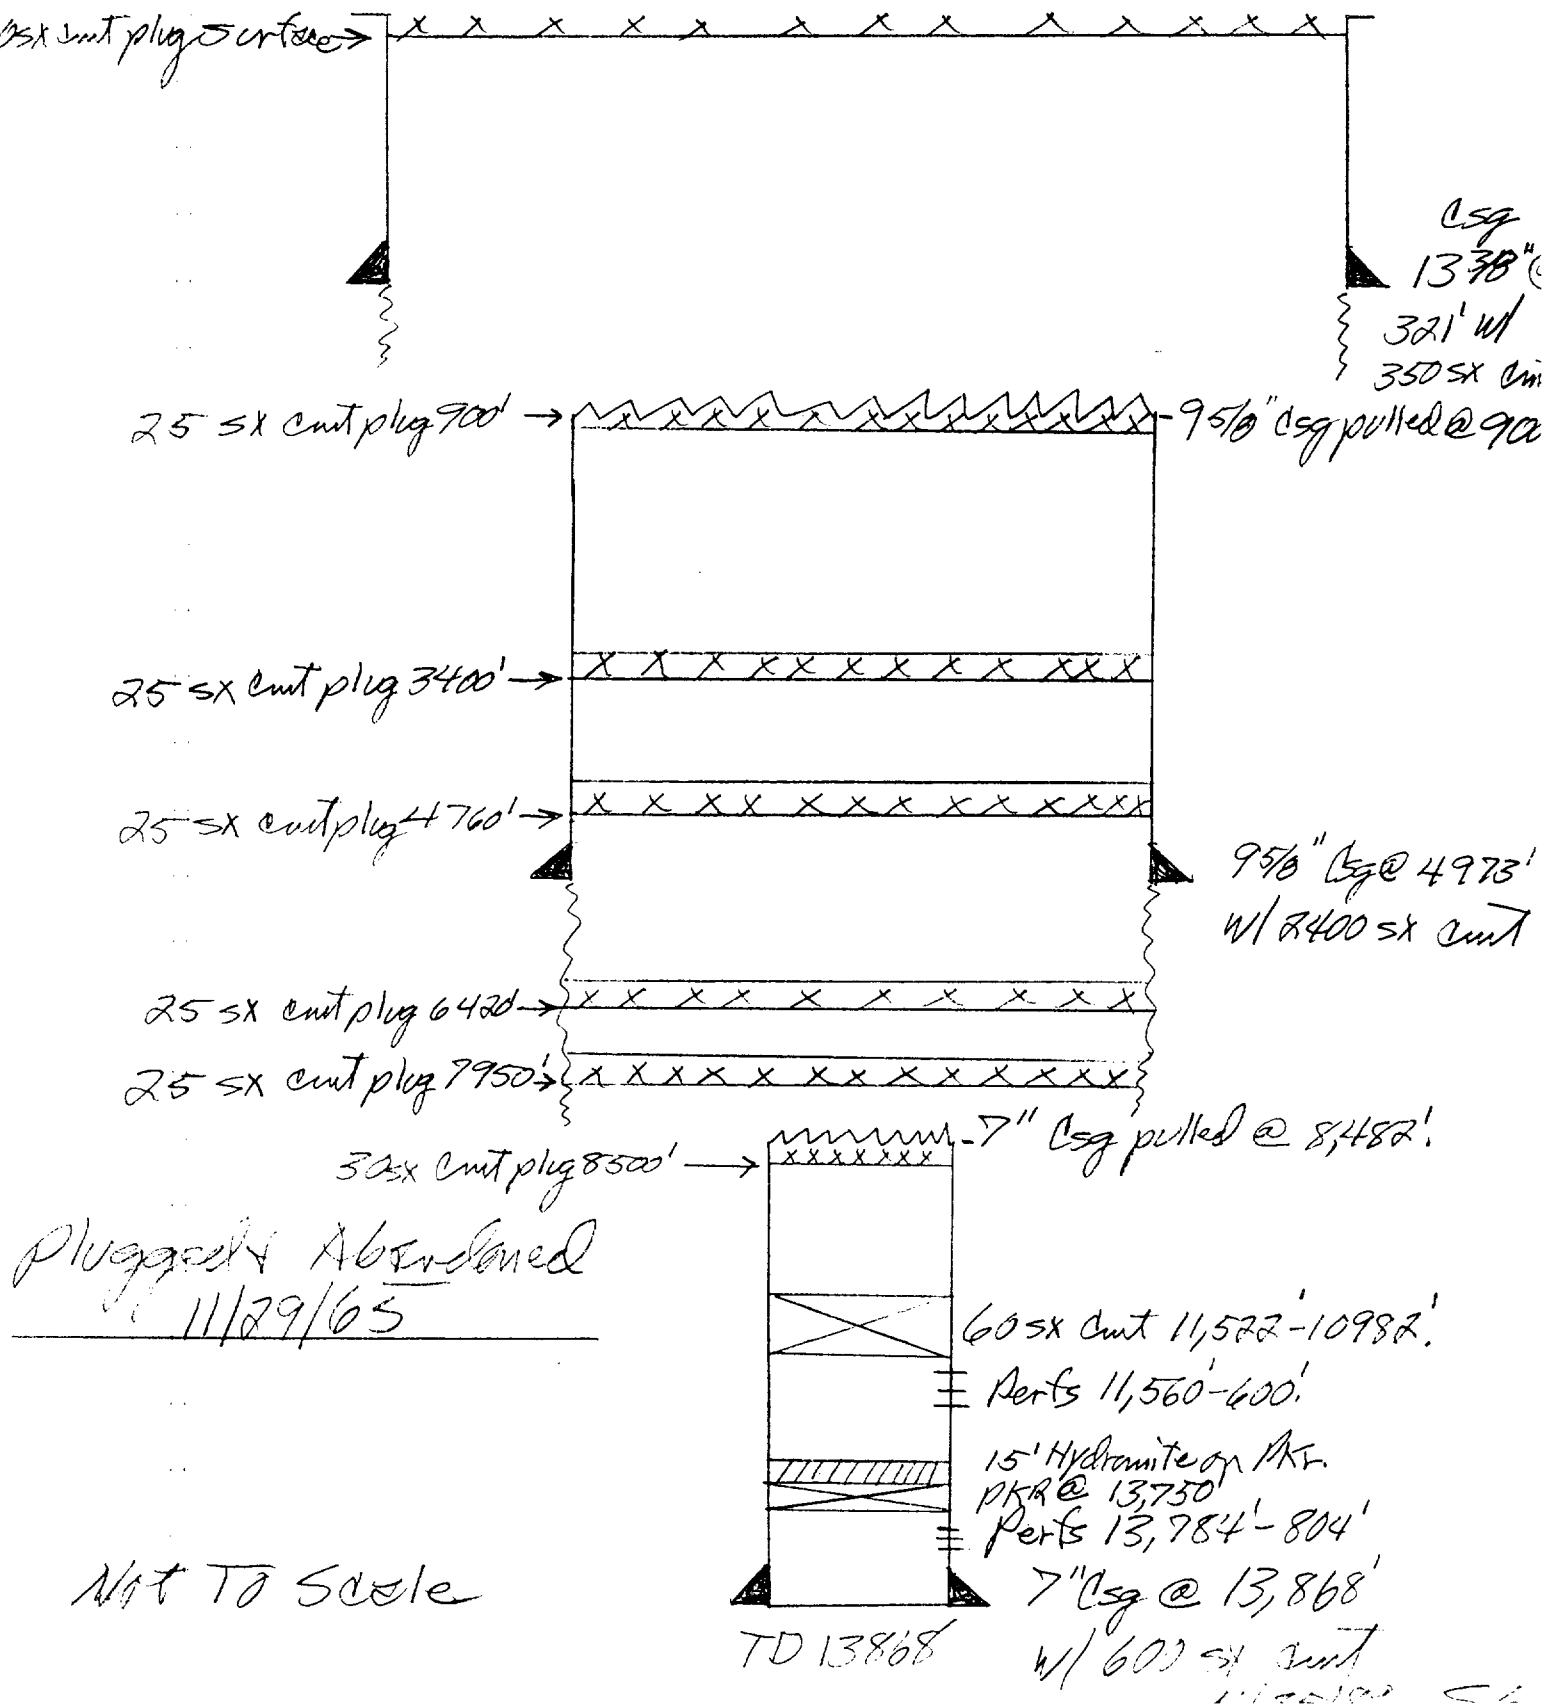 sx cmt plug surface
Csg
13 3/8" @
321' w/
350 sx cm
25 sx cmt plug 900'
9 5/8" Csg pulled @ 900
25 sx cmt plug 3400'
25 sx cmt plug 4760'
9 5/8" Csg @ 4973'
w/ 2400 sx cmt
25 sx cmt plug 6420'
25 sx cmt plug 7950'
7" Csg pulled @ 8,482'.
30sx cmt plug 8500'
Plugged & Abandoned
11/29/65
60 sx cmt 11,522'-10982'.
Perfs 11,560'-600'.
15' Hydromite on Pkr.
PKR @ 13,750'
Perfs 13,784'-804'
Not To Scale
7" Csg @ 13,868'
TD 13868'
w/ 600 sx cmt